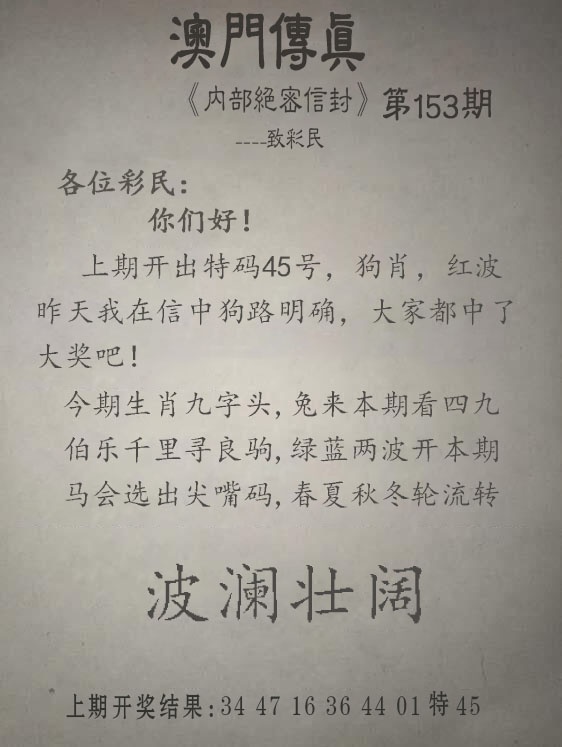 澳門傳眞
《内部絕密信封》第153期
----致彩民
各位彩民：
你们好！
上期开出特码45号，狗肖，红波
昨天我在信中狗路明确，大家都中了
大奖吧！
今期生肖九字头,兔来本期看四九
伯乐千里寻良驹,绿蓝两波开本期
马会选出尖嘴码,春夏秋冬轮流转
波澜壮阔
上期开奖结果:34 47 16 36 44 01 特 45